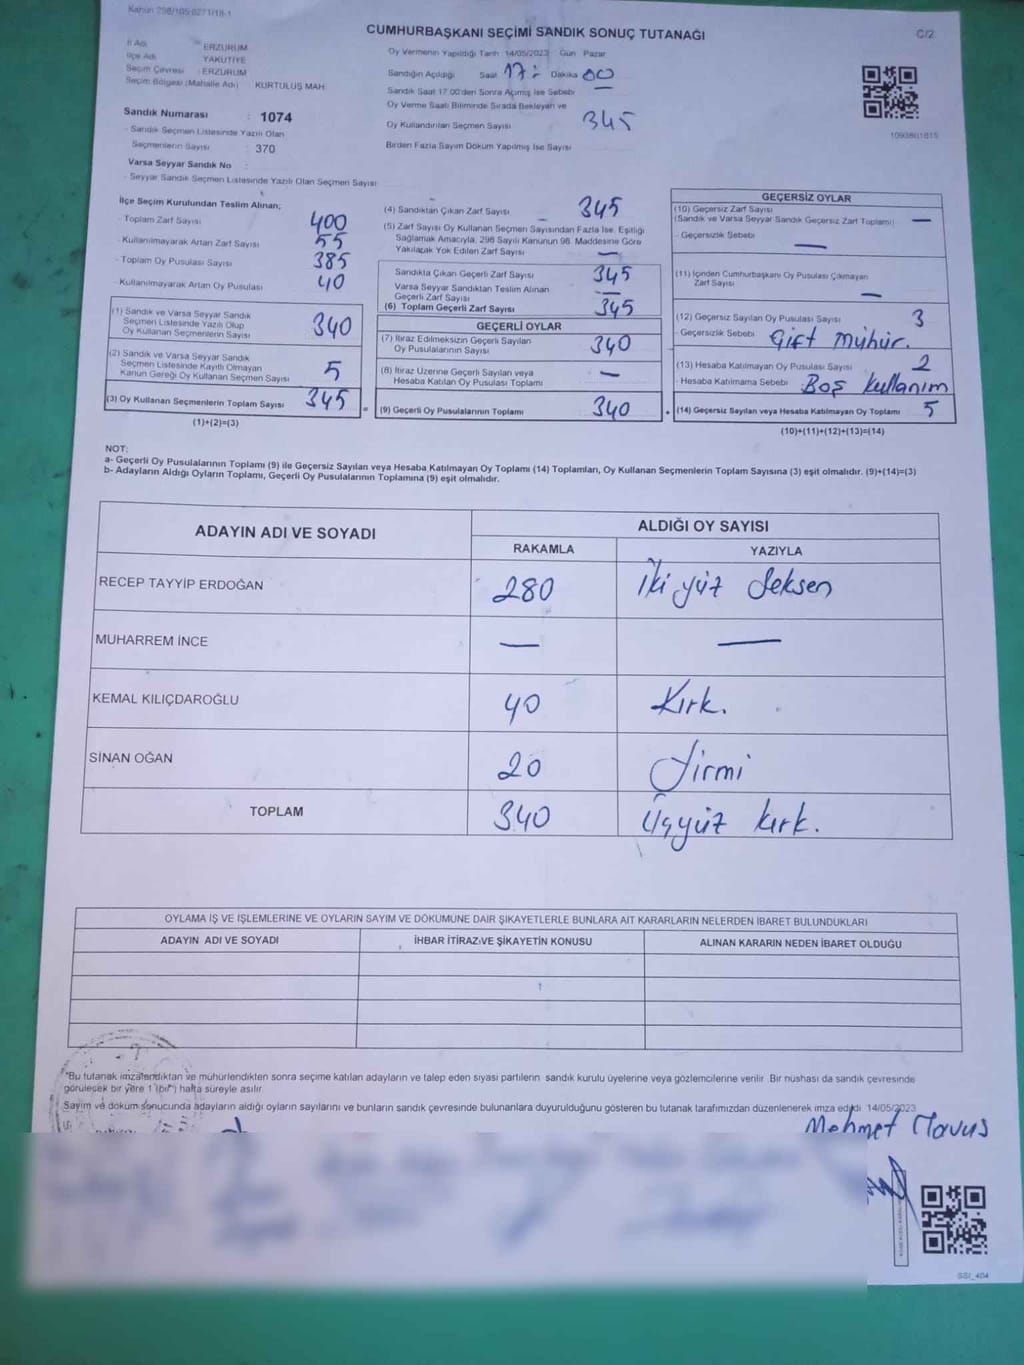 Kanun 298/105 0271/18-1
CUMHURBAŞKANI SEÇİMİ SANDIK SONUÇ TUTANAĞI
C/2
İl Adı : ERZURUM
İlçe Adı : YAKUTİYE
Seçim Çevresi : ERZURUM
Seçim Bölgesi (Mahalle Adı) KURTULUŞ MAH
Sandık Numarası : 1074
- Sandık Seçmen Listesinde Yazılı Olan
Seçmenlerin Sayısı : 370
Varsa Seyyar Sandık No :
- Seyyar Sandık Seçmen Listesinde Yazılı Olan Seçmen Sayısı
Oy Vermenin Yapıldığı Tarih 14/05/2023 Gün Pazar
Sandığın Açıldığı Saat 17 : Dakika 00
Sandık Saat 17.00'den Sonra Açımış İse Sebebi
Oy Verme Saati Bitiminde Sırada Bekleyen ve
Oy Kullandırılan Seçmen Sayısı 345
Birden Fazla Sayım Döküm Yapılmış İse Sayısı
1093801815
İlçe Seçim Kurulundan Teslim Alınan;
- Toplam Zarf Sayısı 400
- Kullanılmayarak Artan Zarf Sayısı 55
- Toplam Oy Pusulası Sayısı 385
- Kullanılmayarak Artan Oy Pusulası 40
(1) Sandık ve Varsa Seyyar Sandık
Seçmen Listesinde Yazılı Olup
Oy Kullanan Seçmenlerin Sayısı 340
(2) Sandık ve Varsa Seyyar Sandık
Seçmen Listesinde Kayıtlı Olmayan
Kanun Gereği Oy Kullanan Seçmen Sayısı 5
(3) Oy Kullanan Seçmenlerin Toplam Sayısı 345
(1)+(2)=(3)
(4) Sandıktan Çıkan Zarf Sayısı 345
(5) Zarf Sayısı Oy Kullanan Seçmen Sayısından Fazla İse, Eşitliği
Sağlamak Amacıyla, 298 Sayılı Kanunun 98. Maddesine Göre
Yakılarak Yok Edilen Zarf Sayısı —
Sandıkta Çıkan Geçerli Zarf Sayısı 345
Varsa Seyyar Sandıktan Teslim Alınan
Geçerli Zarf Sayısı —
(6) Toplam Geçerli Zarf Sayısı 345
GEÇERLİ OYLAR
(7) İtiraz Edilmeksizin Geçerli Sayılan
Oy Pusulalarının Sayısı 340
(8) İtiraz Üzerine Geçerli Sayılan veya
Hesaba Katılan Oy Pusulası Toplamı —
= (9) Geçerli Oy Pusulalarının Toplamı 340 +
GEÇERSİZ OYLAR
(10) Geçersiz Zarf Sayısı
(Sandık ve Varsa Seyyar Sandık Geçersiz Zarf Toplamı) —
- Geçersizlik Sebebi —
(11) İçinden Cumhurbaşkanı Oy Pusulası Çıkmayan
Zarf Sayısı —
(12) Geçersiz Sayılan Oy Pusulası Sayısı 3
- Geçersizlik Sebebi Çift Mühür.
(13) Hesaba Katılmayan Oy Pusulası Sayısı 2
- Hesaba Katılmama Sebebi Boş kullanım
(14) Geçersiz Sayılan veya Hesaba Katılmayan Oy Toplamı 5
(10)+(11)+(12)+(13)=(14)
NOT:
a- Geçerli Oy Pusulalarının Toplamı (9) ile Geçersiz Sayılan veya Hesaba Katılmayan Oy Toplamı (14) Toplamları, Oy Kullanan Seçmenlerin Toplam Sayısına (3) eşit olmalıdır. (9)+(14)=(3)
b- Adayların Aldığı Oyların Toplamı, Geçerli Oy Pusulalarının Toplamına (9) eşit olmalıdır.
ADAYIN ADI VE SOYADI
ALDIĞI OY SAYISI
RAKAMLA YAZIYLA
RECEP TAYYİP ERDOĞAN 280 İki yüz Seksen
MUHARREM İNCE — —
KEMAL KILIÇDAROĞLU 40 Kırk.
SİNAN OĞAN 20 Yirmi
TOPLAM 340 Üçyüz kırk.
OYLAMA İŞ VE İŞLEMLERİNE VE OYLARIN SAYIM VE DÖKÜMÜNE DAİR ŞİKAYETLERLE BUNLARA AİT KARARLARIN NELERDEN İBARET BULUNDUKLARI
ADAYIN ADI VE SOYADI İHBAR İTİRAZ VE ŞİKAYETİN KONUSU ALINAN KARARIN NEDEN İBARET OLDUĞU
"Bu tutanak imzalandıktan ve mühürlendikten sonra seçime katılan adayların ve talep eden siyasi partilerin sandık kurulu üyelerine veya gözlemcilerine verilir. Bir nüshası da sandık çevresinde
görülecek bir yere 1 (bir) hafta süreyle asılır.
Sayım ve döküm sonucunda adayların aldığı oyların sayılarını ve bunların sandık çevresinde bulunanlara duyurulduğunu gösteren bu tutanak tarafımızdan düzenlenerek imza edildi 14/05/2023
Mehmet Mavus
SSI_404